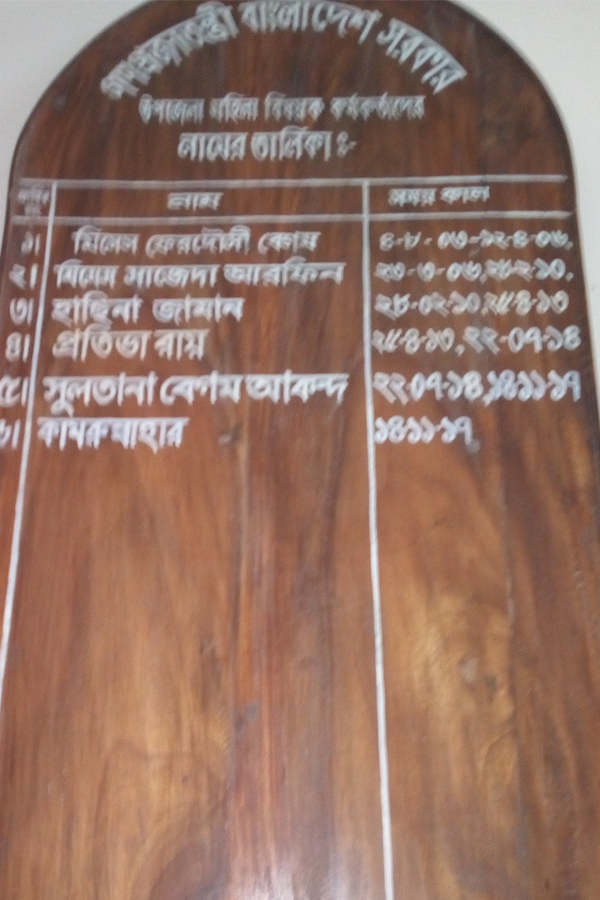 গণপ্রজাতন্ত্রী বাংলাদেশ সরকার
উপজেলা মহিলা বিষয়ক কর্মকর্তাদের
নামের তালিকা ঃ-
নাম সময় কাল
১। মিসেস ফেরদৌসী বেগম ৪-৮-০৩-১২-৪-০৬,
২। মিসেস সাজেদা আরফিন ২৩-৩-০৬,২৮-২-১০,
৩। হাছিনা জামান ২৮-০২-১০,২৫-৪-১৩
৪। প্রতিভা রায় ২৫-৪-১৩,২২-০৭-১৪
৫। সুলতানা বেগম আকন্দ ২২০৭-১৪,১৪১১-১৭
৬। কামরুন্নাহার ১৪১১-১৭